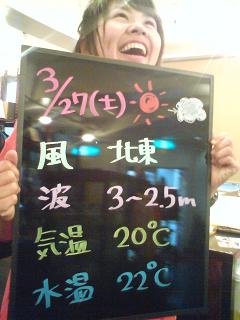 3/27(土)
風 北東
波 3~2.5m
気温 20℃
水温 22℃